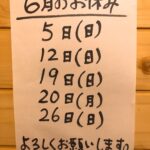 6月のお休み
5日(日)
12日(日)
19日(日)
20日(月)
26日(日)
よろしくお願いします。